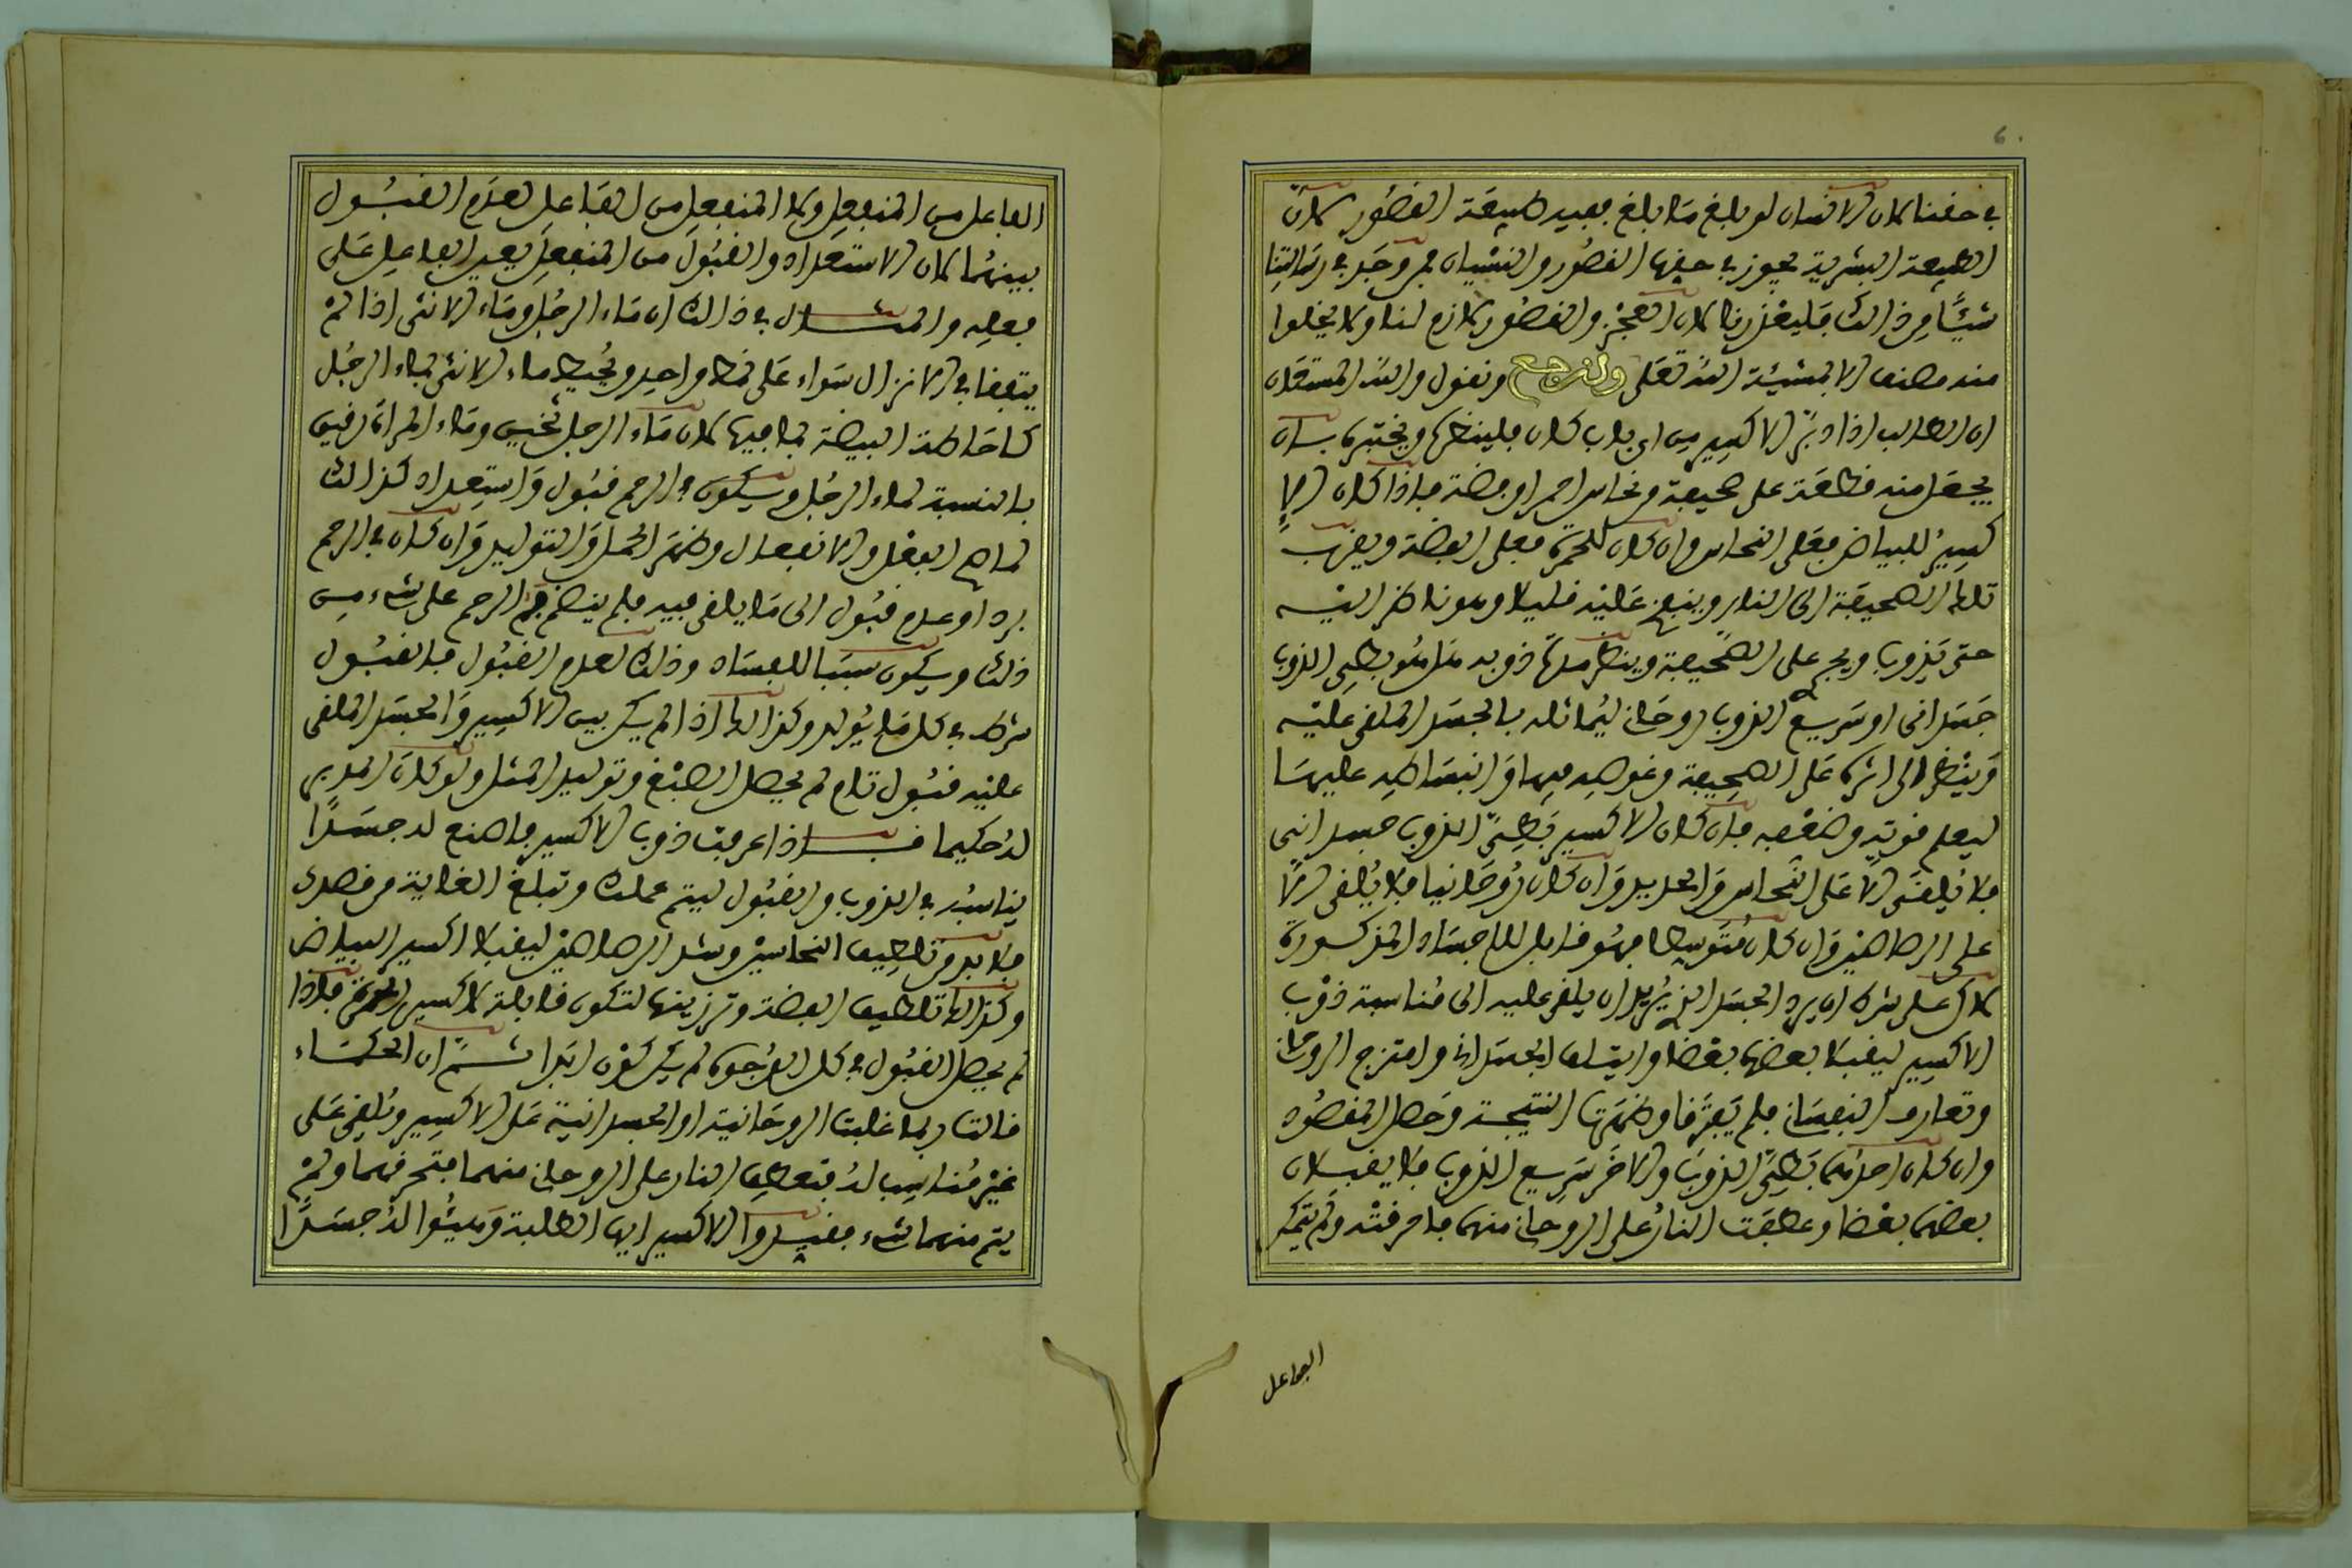 في حقنا لان الانسان لو بلغ ما بلغ ففيه طبيعة القصور لان
الطبيعة البشرية يجوز في حقها القصور والنسيان فمن وجد في رسالتنا
شيئًا من ذالك فليعذرنا لان العجز والقصور لازم لنا ولا يخلوا
منه مصنف الا بمشيئة الله تعلى ولنرجع ونقول والله المستعان
ان الطالب اذا دبّر الاكسير من اي باب كان فلينظر ويختبره بان
يجعل منه قطعة على صحيفة من نحاس احمر او فضة فاذا كان الا
كسيرُ للبياض فعلى النحاس وان كان للحمرة فعلى الفضة ويقرب
تلك الصحيفة الى النار وينفخ عليه قليلا وهو ناظر اليه
حتى يذوب ويجري على الصحيفة وينظر مدة ذوبه هل هو بطي الذوب
جسداني او سريع الذوب روحاني ليماثله بالجسد الملقى عليه
وينظر الى اثره على الصحيفة وغوصه فيها وانبساطه عليها
ليعلم قوته وضعفه فان كان الاكسير بطيّ الذوب جسداني
فلا يُلقى الا على النحاس والحديد وان كان رُوحانيا فلا يُلقى الا
على الرصاصين وان كان متوسطا فهو قابل للاجساد المذكورة
لاكن على شرط ان يرد الجسد الذي يُريد ان يلقي عليه الى مُناسبة ذوب
الاكسير ليقبلا بعضها بعضا وايتلف الجسداني وامتزج الروحاني
وتعارف النفسان فلم يفترقا وظهرت النتيجة وحصل المقصود
وان كان احدهما بطيّ الذوب والاخر سريع الذوب فلا يقبلان
بعضهما بعضا وعطفت النارُ على الروحاني منهما فاحرقته ولم يتمكن
الفاعل
الفاعل من المنفعل ولا المنفعل من الفاعل لعدم القبول
بينهما لان الاستعداد والقبول من المنفعل يعين الفاعل على
فعله والمثال في ذالك ان ماء الرجل وماء الانثى اذا لم
يتفقا في الانزال سواء على نمط واحد ويُحيط ماء الانثى بماء الرجل
كاحاطة البيضة بما فيها لان ماء الرجل ثخين وماء المراة رقيق
بالنسبة لماء الرجل ويكون في الرحم قبول واستعداد كذالك
لما صح الفعل والانفعال وظهر الحمل والتوليد وان كان في الرحم
برد او عدم قبول الى ما يلقى فيه فلم ينضم فم الرحم على شيء من
ذلك ويكون سببا للفساد وذلك لعدم القبول فالقبول
شرط في كل ما يُولد وكذالك اذا لم يكن بين الاكسير والجسد الملقى
عليه قبول تام لم يحصل الصبغ وتوليد المثل ولو كان المدبر
له حكيما فاذا عرفت ذوب الاكسير فاصنع له جسدًا
يناسبُه في الذوب والقبول ليتم عملك وتبلغ الغاية من قصدك
فلا بد من تلطيف النحاسين وشد الرصاصين ليقبلا اكسير البياض
وكذالك تلطيف الفضة وترزينها لتكون قابلة لاكسير الحمرة فاذا
لم يحصل القبول في كل الوجوه لم يكن كون ابدا ثم ان الحكماء
قالت ربما غلبت الروحانية او الجسدانية على الاكسير وتُلقى على
غير مُناسب له فتعطف النار على الروحاني منهما فتحرقهما ولم
يتم منهما شيء فقيدوا الاكسير ايها الطلبة وهيئوا له جسدًا